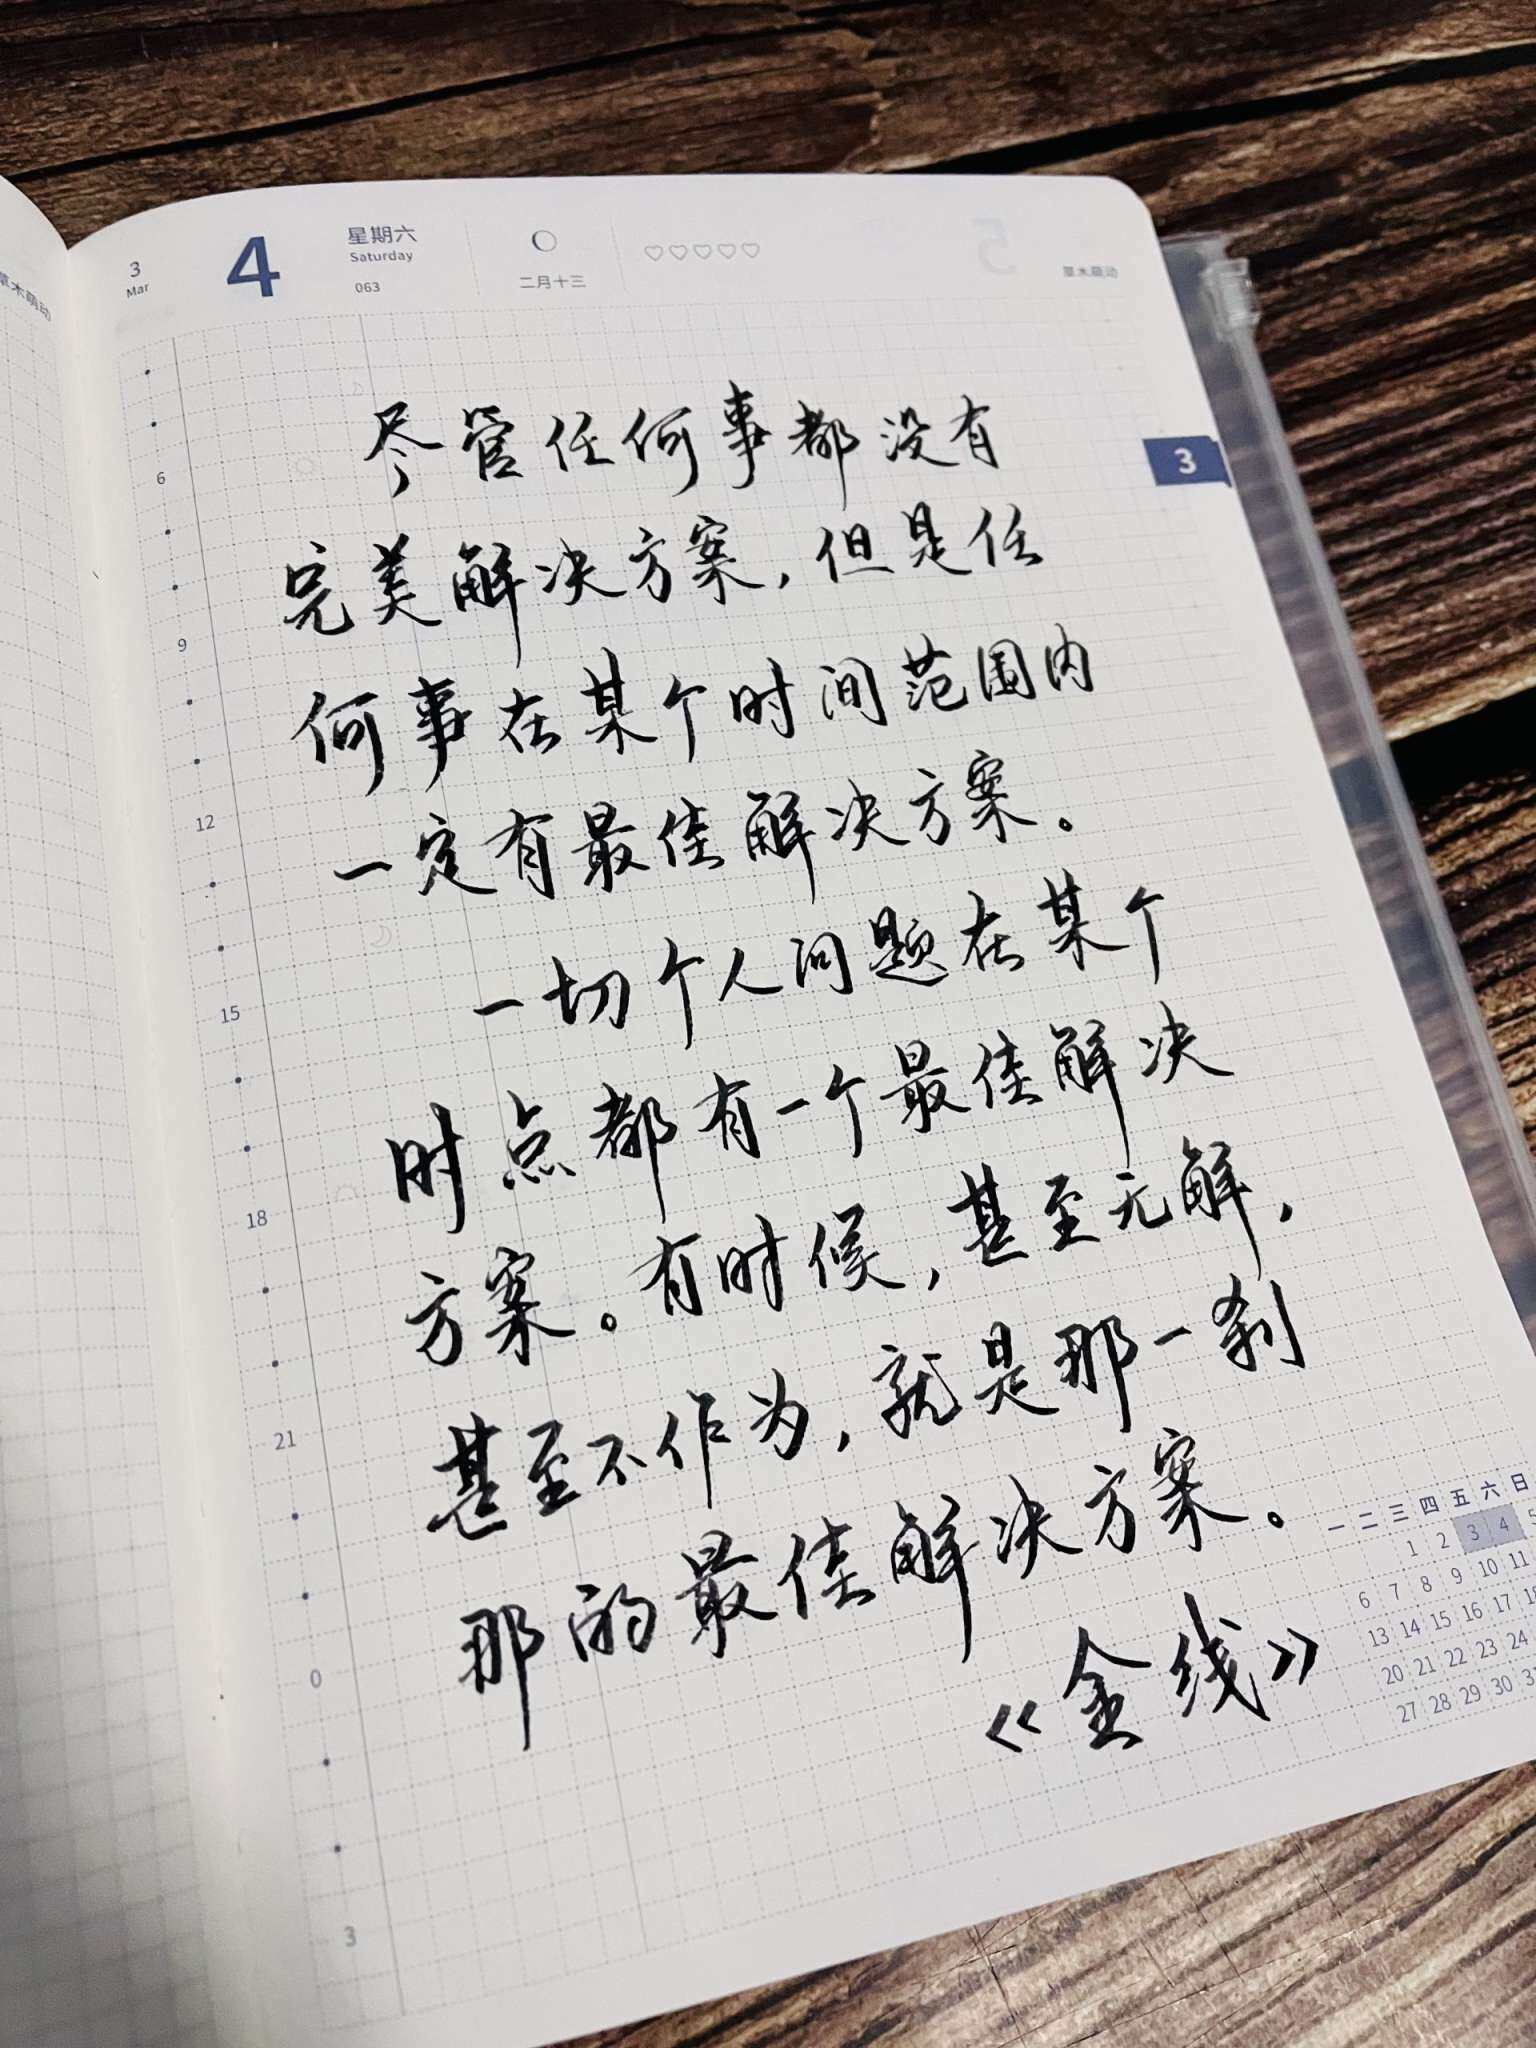 草木萌动
3
Mar
4
星期六
Saturday
063
二月十三
5
草木萌动
3
尽管任何事都没有
完美解决方案，但是任
何事在某个时间范围内
一定有最佳解决方案。
一切个人问题在某个
时点都有一个最佳解决
方案。有时候，甚至无解，
甚至不作为，就是那一刹
那的最佳解决方案。
《金线》
6
9
12
15
18
21
0
3
一 二 三 四 五 六 日
1 2 3 4 5
6 7 8 9 10 11
13 14 15 16 17 18
20 21 22 23 24
27 28 29 30 3